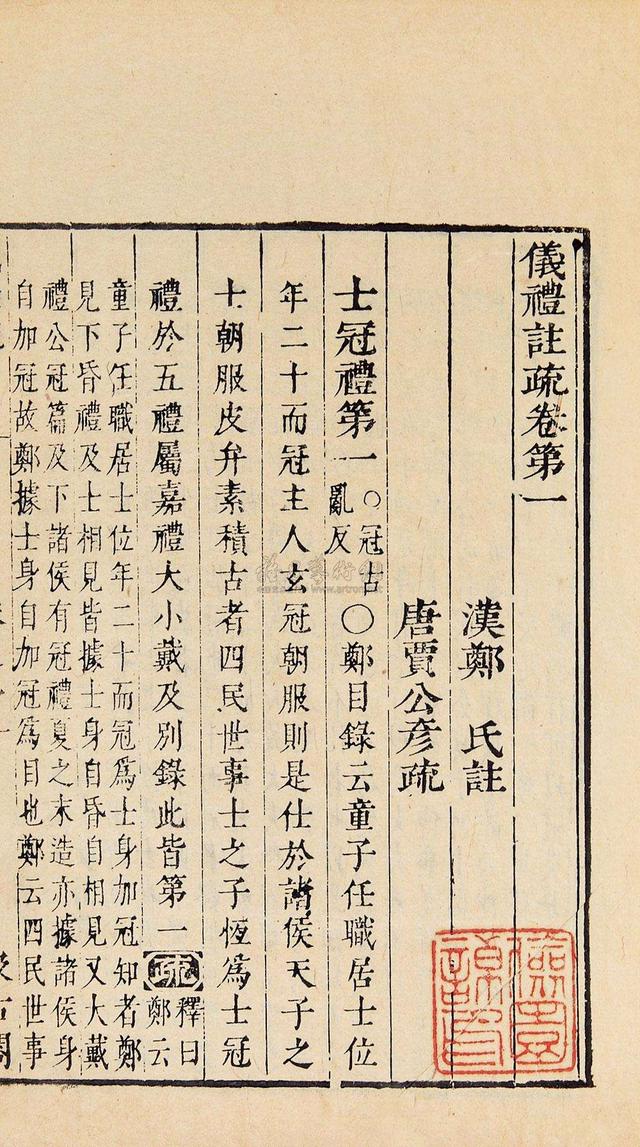 儀禮註疏卷第一
漢鄭　氏註
唐賈公彥疏
士冠禮第一○冠古亂反○鄭目錄云童子任職居士位
年二十而冠主人玄冠朝服則是仕於諸侯天子之
士朝服皮弁素積古者四民世事士之子恆爲士冠
禮於五禮屬嘉禮大小戴及別錄此皆第一疏釋曰鄭云
童子任職居士位年二十而冠爲士身加冠知者鄭
見下昏禮及士相見皆據士身自昏自相見又大戴
禮公冠篇及下諸侯有冠禮夏之末造亦據諸侯身
自加冠故鄭據士身自加冠爲目也鄭云四民世事